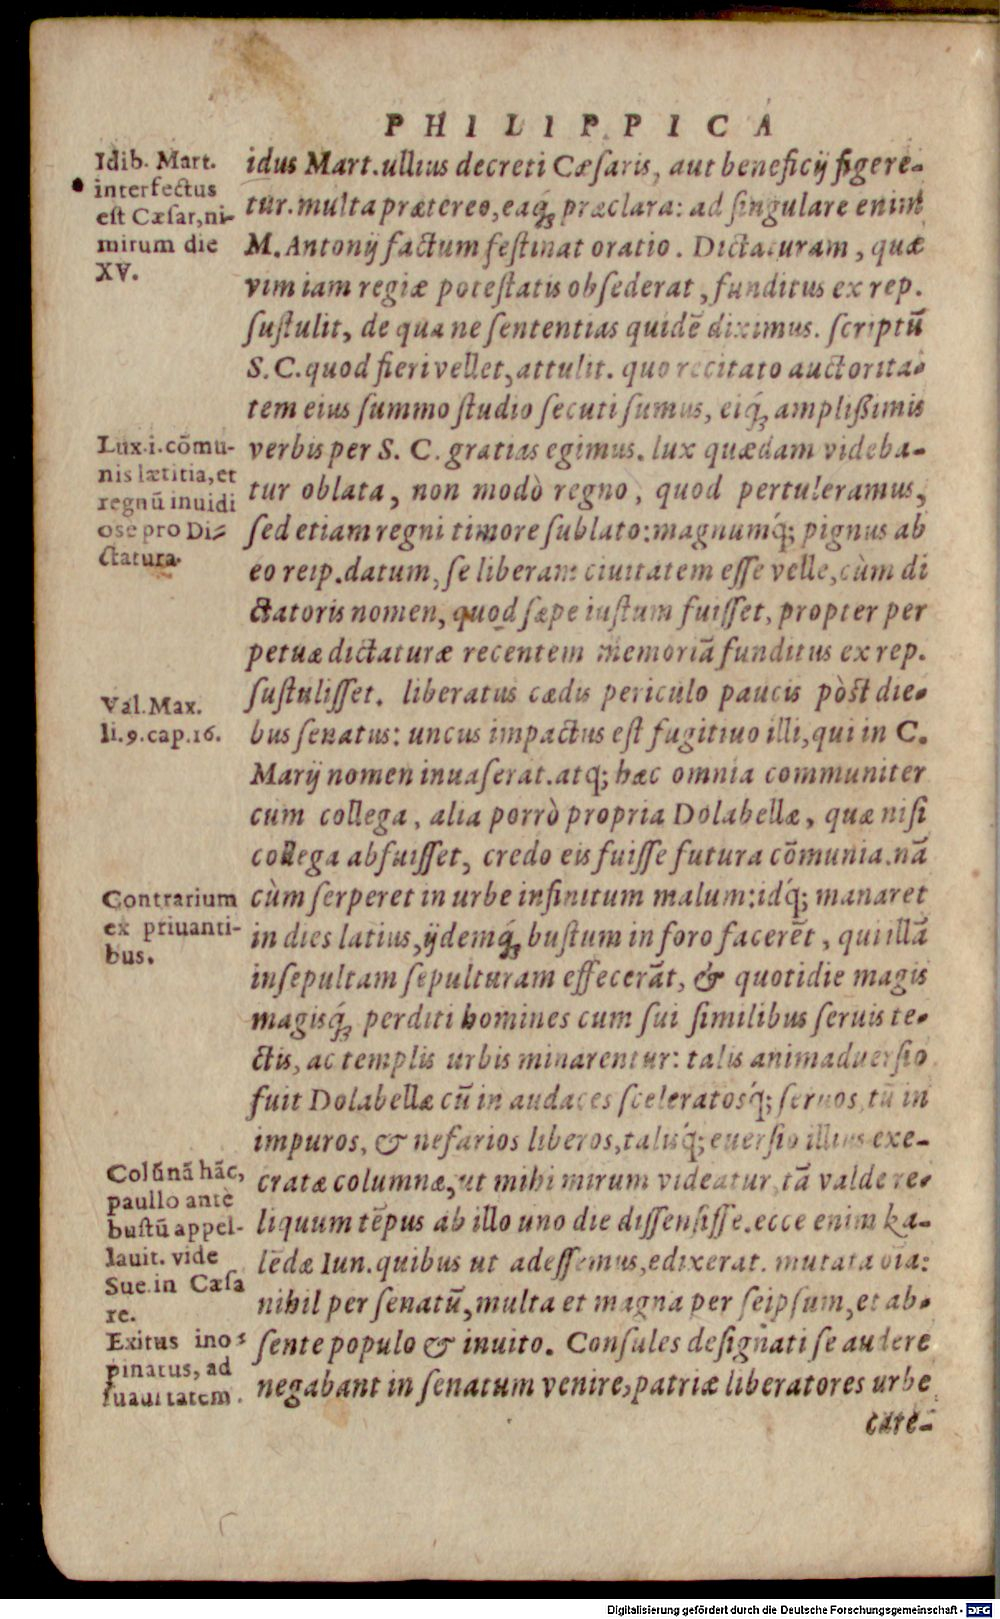 PHILIPPICA
Idib. Mart.
interfectus
est Cæsar, ni-
mirum die
XV.
idus Mart. ullius decreti Cæsaris, aut beneficij figere-
tur. multa prætereo, eaq́; præclara: ad singulare enim
M. Antonij factum festinat oratio. Dictaturam, quæ
vim iam regiæ potestatis obsederat, funditus ex rep.
sustulit, de qua ne sententias quidē diximus. scriptū
S. C. quod fieri vellet, attulit. quo recitato auctorita-
tem eius summo studio secuti sumus, eiq́; amplißimis
Lux. i. cōmu-
nis lætitia, et
regnū inuidi
ose pro Di-
ctatura.
verbis per S. C. gratias egimus. lux quædam videba-
tur oblata, non modò regno, quod pertuleramus,
sed etiam regni timore sublato: magnumq́; pignus ab
eo reip. datum, se liberam ciuitatem esse velle, cùm di
ctatoris nomen, quod sæpe iustum fuisset, propter per
petuæ dictaturæ recentem memoriā funditus ex rep.
Val. Max.
li. 9. cap. 16.
sustulisset. liberatus cædis periculo paucis pòst die-
bus senatus: uncus impactus est fugitiuo illi, qui in C.
Marij nomen inuaserat. atq; hæc omnia communiter
cum collega, alia porrò propria Dolabellæ, quæ nisi
collega abfuisset, credo eis fuisse futura cōmunia. nā
Contrarium
ex priuanti-
bus.
cùm serperet in urbe infinitum malum: idq́; manaret
in dies latius, ijdemq́; bustum in foro facerēt, qui illā
insepultam sepulturam effecerāt, & quotidie magis
magisq́; perditi homines cum sui similibus seruis te-
ctis, ac templis urbis minarentur: talis animaduersio
fuit Dolabellæ cū in audaces sceleratosq́; seruos, tū in
impuros, & nefarios liberos, talisq́; euersio illius exe-
Colūnā hāc,
paullo antè
bustū appel-
lauit. vide
Sue. in Cæsa
re.
Exitus ino-
pinatus, ad
suauitatem.
cratæ columnæ, ut mihi mirum videatur, tā valde re-
liquum tēpus ab illo uno die dissensisse. ecce enim ka-
lēdæ Iun. quibus ut adessemus, edixerat. mutata oīa:
nihil per senatū, multa et magna per seipsum, et ab-
sente populo & inuito. Consules designati se audere
negabant in senatum venire, patriæ liberatores urbe
care-
Digitalisierung gefördert durch die Deutsche Forschungsgemeinschaft - DFG